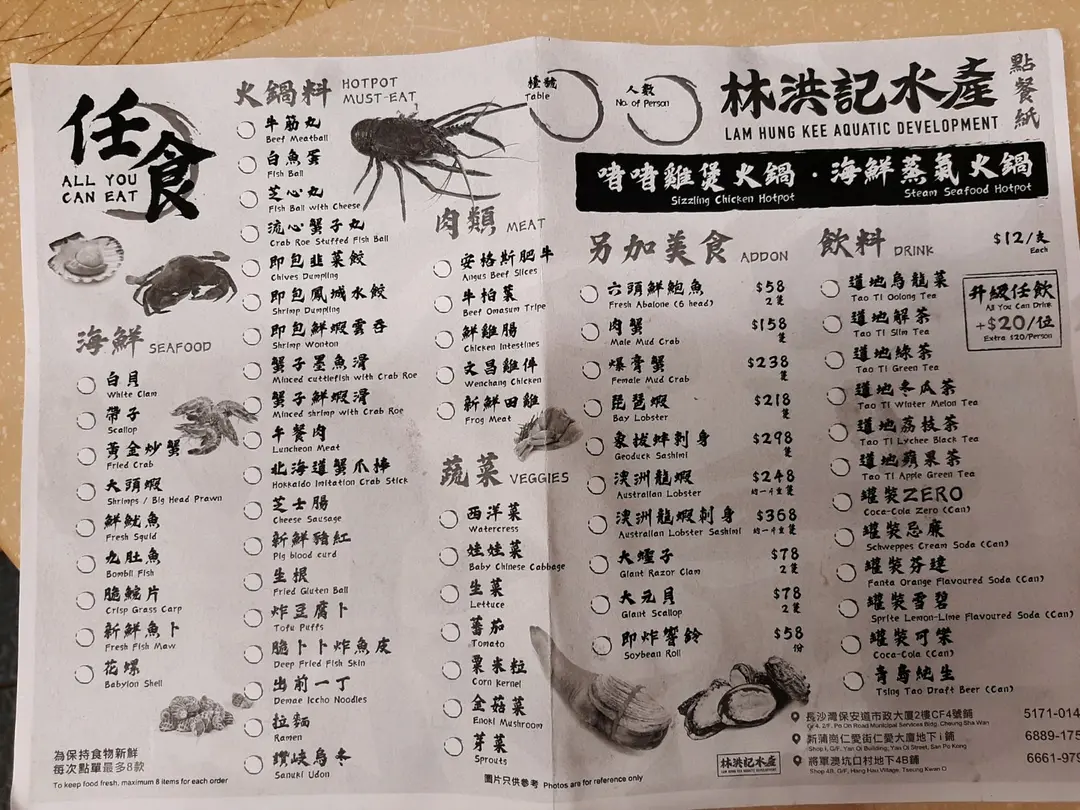 任食
ALL YOU
CAN EAT
海鮮 SEAFOOD
白貝
White Clam
帶子
Scallop
黃金炒蟹
Fried Crab
大頭蝦
Shrimps / Big Head Prawn
鮮魷魚
Fresh Squid
九肚魚
Bombil Fish
脆鯇片
Crisp Grass Carp
新鮮魚卜
Fresh Fish Maw
花螺
Babylon Shell
為保持食物新鮮
每次點單最多8款
To keep food fresh, maximum 8 items for each order
火鍋料 HOTPOT
MUST-EAT
牛筋丸
Beef Meatball
白魚蛋
Fish Ball
芝心丸
Fish Ball with Cheese
流心蟹子丸
Crab Roe Stuffed Fish Ball
即包韭菜餃
Chives Dumpling
即包鳳城水餃
Shrimp Dumpling
即包鮮蝦雲吞
Shrimp Wonton
蟹子墨魚滑
Minced cuttlefish with Crab Roe
蟹子鮮蝦滑
Minced shrimp with Crab Roe
午餐肉
Luncheon Meat
北海道蟹爪棒
Hokkaido Imitation Crab Stick
芝士腸
Cheese Sausage
新鮮豬紅
Pig blood curd
生根
Fried Gluten Ball
炸豆腐卜
Tofu Puffs
脆卜卜炸魚皮
Deep Fried Fish Skin
出前一丁
Demae Iccho Noodles
拉麵
Ramen
讚岐烏冬
Sanuki Udon
肉類 MEAT
安格斯肥牛
Angus Beef Slices
牛柏葉
Beef Omasum Tripe
鮮雞腸
Chicken Intestines
文昌雞件
Wenchang Chicken
新鮮田雞
Frog Meat
蔬菜 VEGGIES
西洋菜
Watercress
娃娃菜
Baby Chinese Cabbage
生菜
Lettuce
蕃茄
Tomato
粟米粒
Corn Kernel
金菇菜
Enoki Mushroom
芽菜
Sprouts
圖片只供參考 Photos are for reference only
檯號
Table
人數
No. of Person
林洪記水產
LAM HUNG KEE AQUATIC DEVELOPMENT
點餐紙
啫啫雞煲火鍋 · 海鮮蒸氣火鍋
Sizzling Chicken Hotpot Steam Seafood Hotpot
另加美食 ADDON
六頭鮮鮑魚 $58
Fresh Abalone (6 head) 2隻
肉蟹 $158
Male Mud Crab 隻
爆膏蟹 $238
Female Mud Crab 隻
琵琶蝦 $218
Bay Lobster 隻
象拔蚌刺身 $298
Geoduck Sashimi 隻
澳洲龍蝦 $248
Australian Lobster
澳洲龍蝦刺身 $368
Australian Lobster Sashimi
大蟶子 $78
Giant Razor Clam 2隻
大元貝 $78
Giant Scallop 2隻
即炸響鈴 $58
Soybean Roll 份
飲料 DRINK $12/支
Each
升級任飲
All You Can Drink
+$20/位
Extra $20/Person
道地烏龍茶
Tao Ti Oolong Tea
道地解茶
Tao Ti Slim Tea
道地綠茶
Tao Ti Green Tea
道地冬瓜茶
Tao Ti Winter Melon Tea
道地荔枝茶
Tao Ti Lychee Black Tea
道地蘋果茶
Tao Ti Apple Green Tea
罐裝ZERO
Coca-Cola Zero (Can)
罐裝忌廉
Schweppes Cream Soda (Can)
罐裝芬達
Fanta Orange Flavoured Soda (Can)
罐裝雪碧
Sprite Lemon-Lime Flavoured Soda (Can)
罐裝可樂
Coca-Cola (Can)
青島純生
Tsing Tao Draft Beer (Can)
林洪記水產
LAM HUNG KEE AQUATIC DEVELOPMENT
長沙灣保安道市政大廈2樓CF4號舖 5171-014
CF4, 2/F, Po On Road Municipal Services Bldg, Cheung Sha Wan
新蒲崗仁愛街仁愛大廈地下i舖 6889-175
Shop I, G/F, Yan Oi Building, Yan Oi Street, San Po Kong
將軍澳坑口村地下4B舖 6661-979
Shop 4B, G/F, Hang Hau Village, Tseung Kwan O